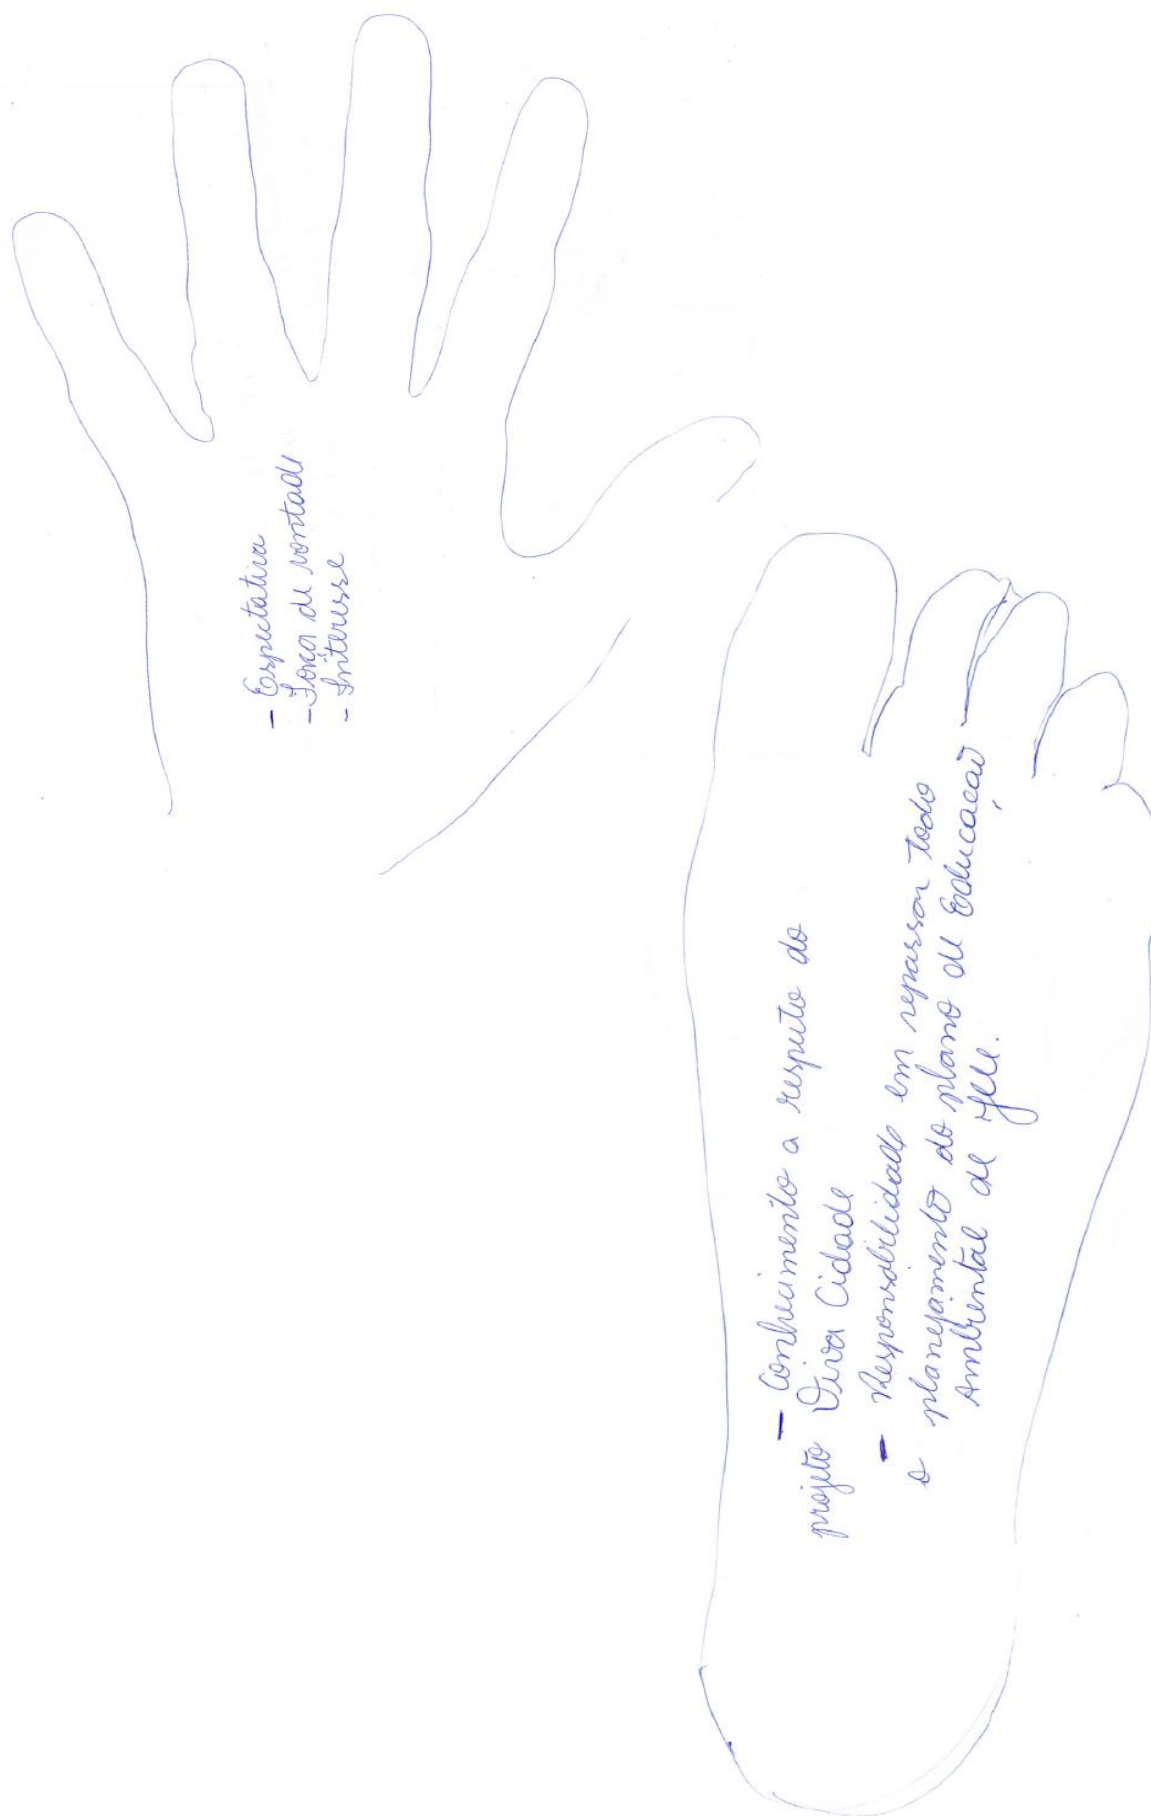 - Espectativa
- Força de vontade
- Interesse
- Conhecimento a respeito do
projeto Viva Cidade
- Responsabilidade em repassar todo
o planejamento do plano de Educação
Ambiental de